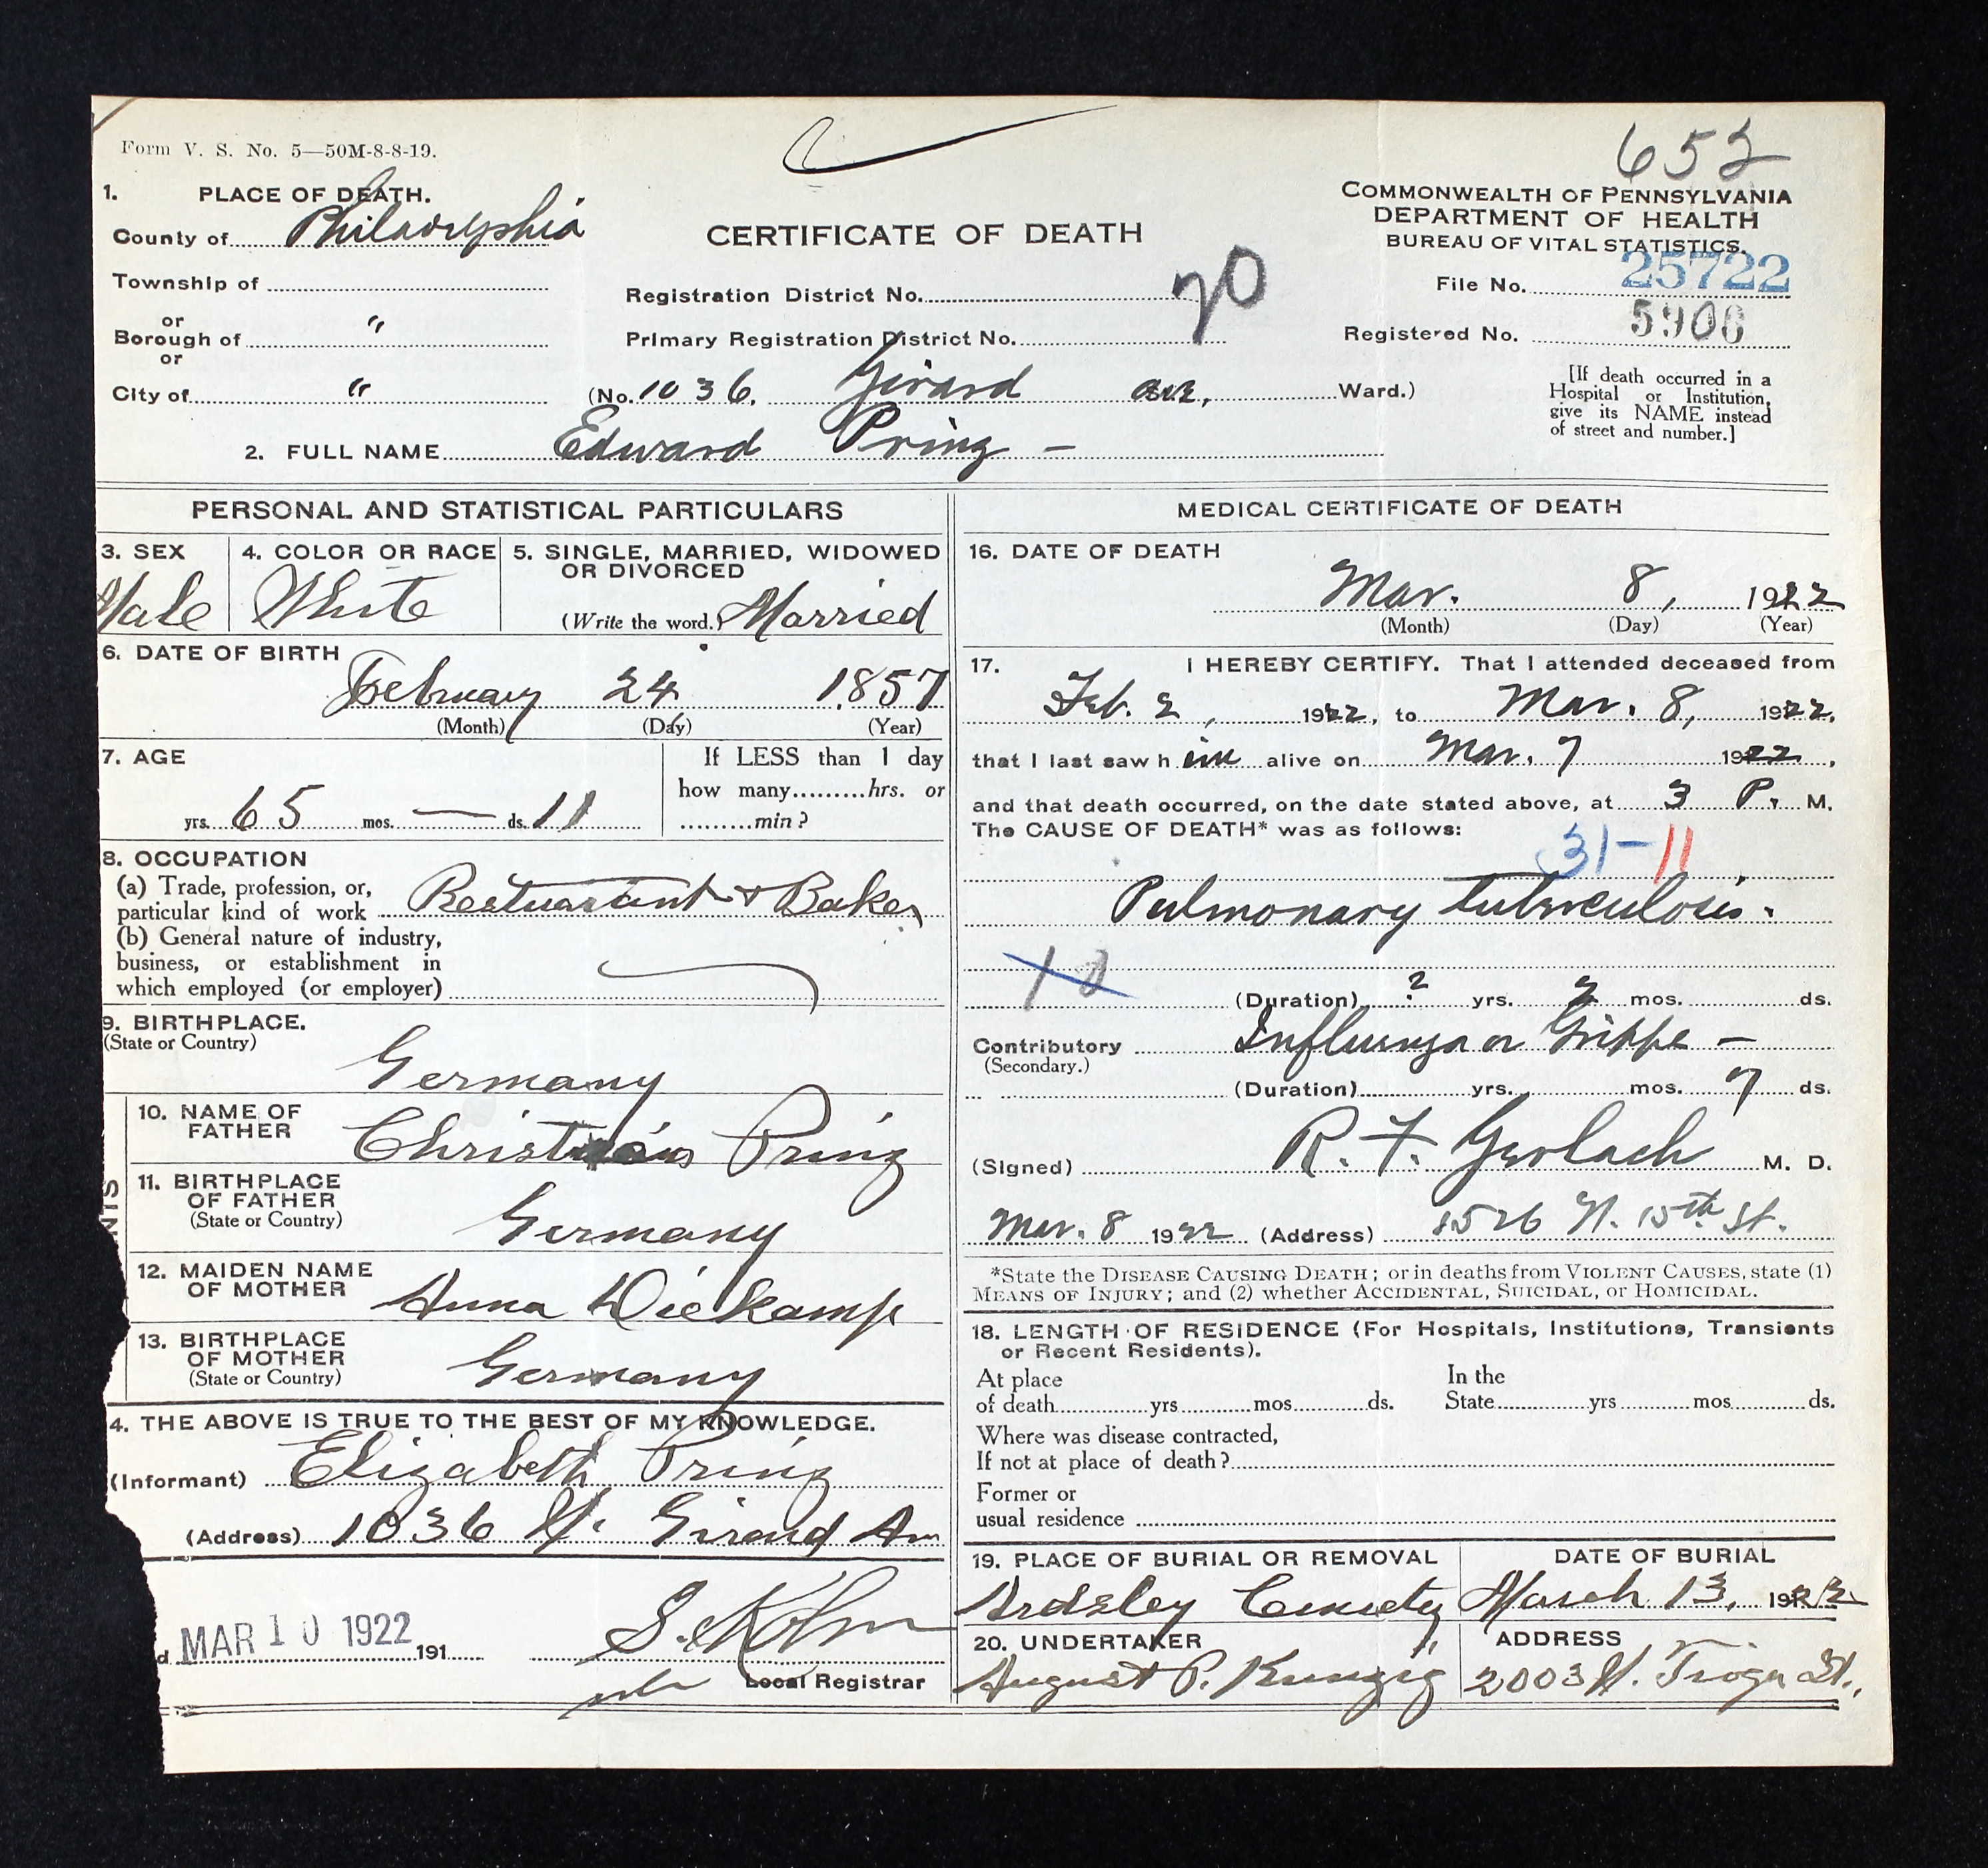 Form V. S. No. 5—50M-8-8-19.
652
1. PLACE OF DEATH.
County of Philadelphia
Township of
or
Borough of "
or
City of "
CERTIFICATE OF DEATH
Registration District No.
20
Primary Registration District No.
(No. 1036. Girard ave, Ward.)
COMMONWEALTH OF PENNSYLVANIA
DEPARTMENT OF HEALTH
BUREAU OF VITAL STATISTICS.
File No. 25722
Registered No. 5906
[If death occurred in a
Hospital or Institution,
give its NAME instead
of street and number.]
2. FULL NAME Edward Prinz –
PERSONAL AND STATISTICAL PARTICULARS
3. SEX
Male
4. COLOR OR RACE
White
5. SINGLE, MARRIED, WIDOWED
OR DIVORCED
(Write the word.) Married
6. DATE OF BIRTH
February 24 1857
(Month) (Day) (Year)
7. AGE
yrs. 65 mos. — ds. 11
If LESS than 1 day
how many.........hrs. or
.........min?
8. OCCUPATION
(a) Trade, profession, or,
particular kind of work Restuarant + Baker
(b) General nature of industry,
business, or establishment in
which employed (or employer)
9. BIRTHPLACE.
(State or Country)
Germany
10. NAME OF
FATHER
Prinz
11. BIRTHPLACE
OF FATHER
(State or Country)
Germany
12. MAIDEN NAME
OF MOTHER
Anna Diekamp
13. BIRTHPLACE
OF MOTHER
(State or Country)
Germany
4. THE ABOVE IS TRUE TO THE BEST OF MY KNOWLEDGE.
(Informant) Elizabeth Prinz
(Address) 1036 W. Girard Av
d MAR 10 1922 191
Local Registrar
MEDICAL CERTIFICATE OF DEATH
16. DATE OF DEATH
Mar. 8, 1922
(Month) (Day) (Year)
17. I HEREBY CERTIFY. That I attended deceased from
Feb. 2, 1922, to Mar. 8, 1922,
that I last saw h im alive on Mar. 7 1922,
and that death occurred, on the date stated above, at 3 P. M.
The CAUSE OF DEATH* was as follows:
31-11
Pulmonary tuberculosis.
10
(Duration) ? yrs. 2 mos. ds.
Contributory Influenza or Grippe –
(Secondary.)
(Duration) yrs. mos. 7 ds.
(Signed) R. F. Gerlach M. D.
Mar. 8 1922 (Address) 1526 N. 15th St.
*State the DISEASE CAUSING DEATH; or in deaths from VIOLENT CAUSES, state (1)
MEANS OF INJURY; and (2) whether ACCIDENTAL, SUICIDAL, or HOMICIDAL.
18. LENGTH OF RESIDENCE (For Hospitals, Institutions, Transients
or Recent Residents).
At place
of death yrs mos ds.
In the
State yrs mos ds.
Where was disease contracted,
If not at place of death?
Former or
usual residence
19. PLACE OF BURIAL OR REMOVAL
Ardsley Cemetery
DATE OF BURIAL
March 13, 1922
20. UNDERTAKER
August P. Kunzig
ADDRESS
2003 W. Tioga St.,